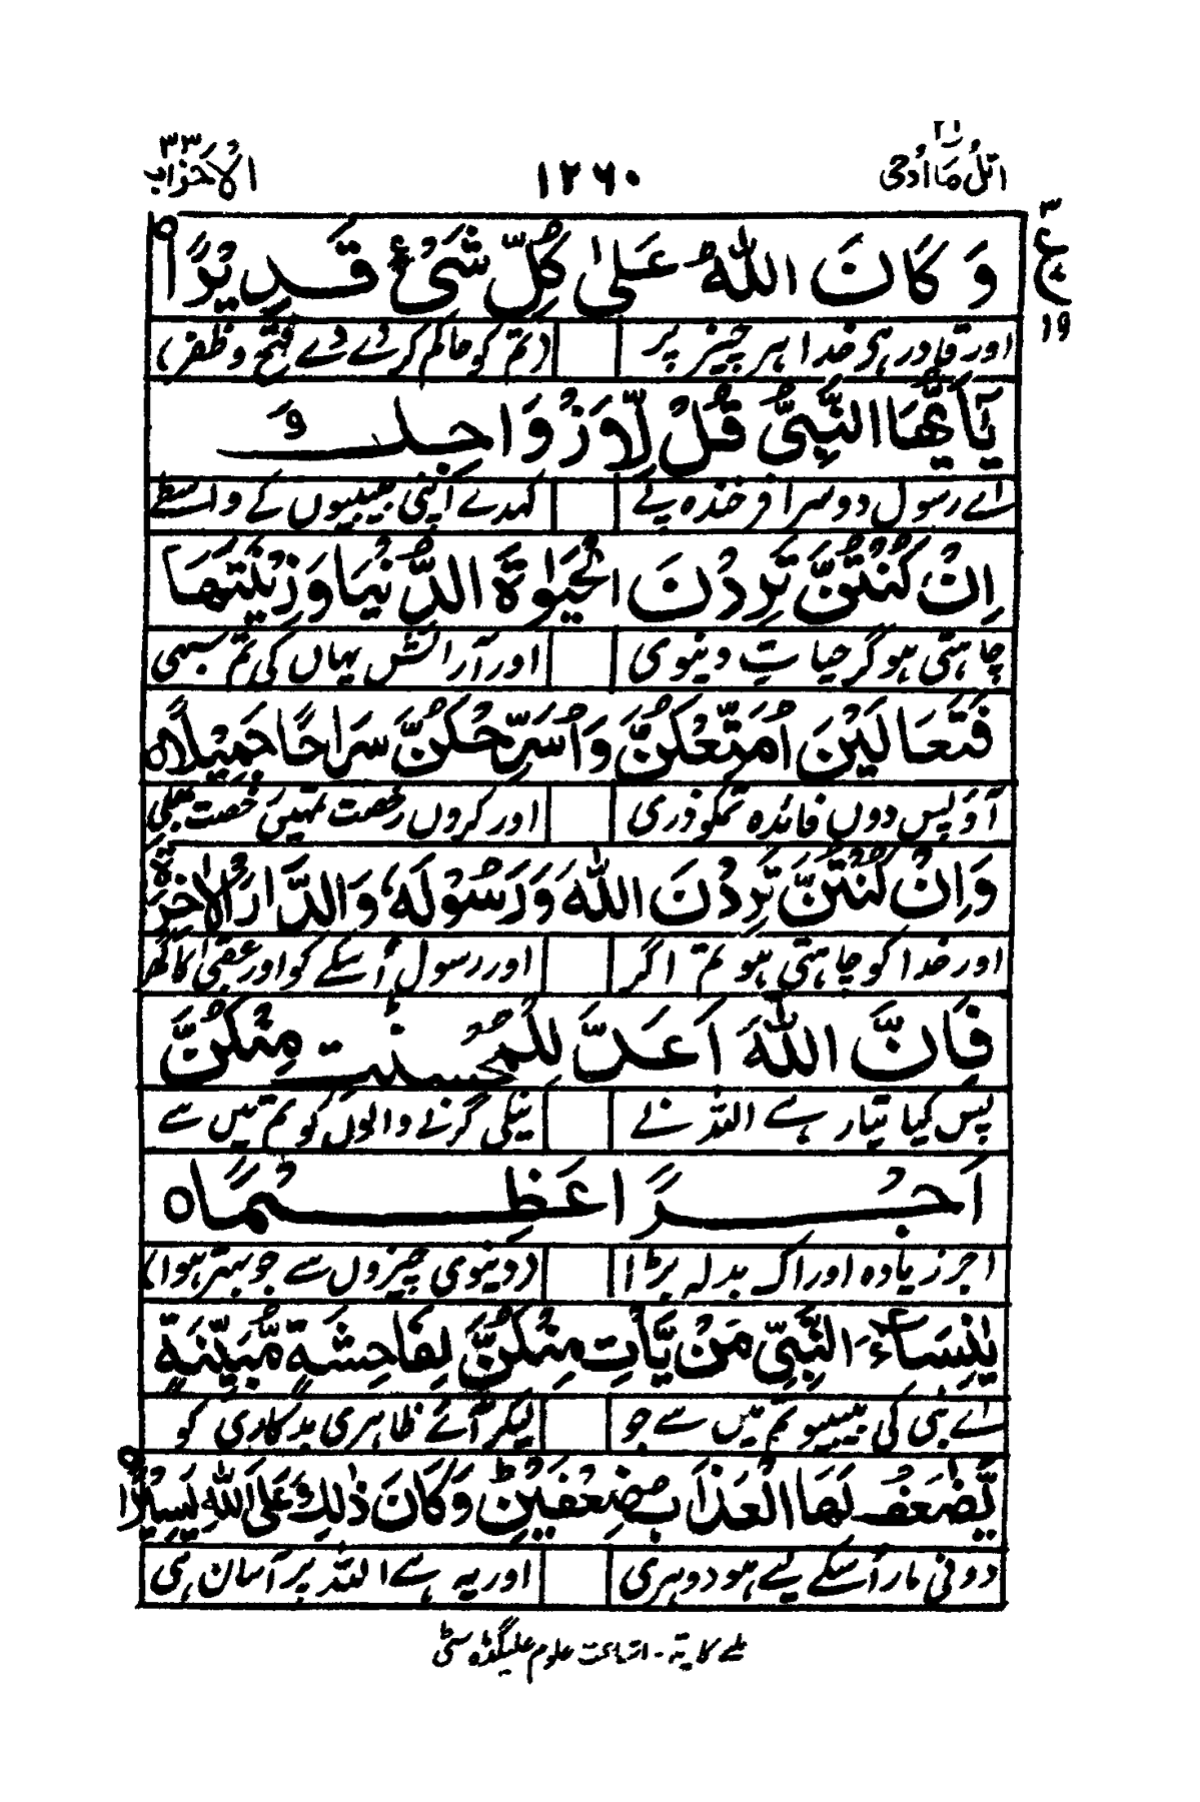 اتل ما اوحی ۲۱ ۱۲۶۰ الاحزاب ۳۳
وَكَانَ اللّٰهُ عَلٰى كُلِّ شَىْءٍ قَدِيْرًا
۳ ع ۱۹
اور قادر ہی خدا ہر چیز پر (تم کو حاکم کر دے دے فتح و ظفر)
يٰۤاَيُّهَا النَّبِىُّ قُلْ لِّاَزْوَاجِكَ
اے رسولِ دوسرا فرخندہ پے کہدے اپنی بیبیوں کے واسطے
اِنْ كُنْتُنَّ تُرِدْنَ الْحَيٰوةَ الدُّنْيَا وَزِيْنَتَهَا
چاہتی ہو گر حیاتِ دنیوی اور آرائش یہاں کی تم سبھی
فَتَعَالَيْنَ اُمَتِّعْكُنَّ وَاُسَرِّحْكُنَّ سَرَاحًا جَمِيْلًا
آؤ پس دوں فائدہ تمکو ذری اور کروں رخصت تمہیں رخصت بھلی
وَاِنْ كُنْتُنَّ تُرِدْنَ اللّٰهَ وَرَسُوْلَهٗ وَالدَّارَ الْاٰخِرَةَ
اور خدا کو چاہتی ہو تم اگر اور رسول اُسکے کو اور عقبیٰ کا گھر
فَاِنَّ اللّٰهَ اَعَدَّ لِلْمُحْسِنٰتِ مِنْكُنَّ
پس کیا تیار ہے اللہ نے نیکی کرنے والوں کو تم میں سے
اَجْرًا عَظِيْمًا
اجر زیادہ اور اک بدلہ بڑا (دنیوی چیزوں سے جو بہتر ہوا)
يٰنِسَآءَ النَّبِىِّ مَنْ يَّاْتِ مِنْكُنَّ بِفَاحِشَةٍ مُّبَيِّنَةٍ
اے نبی کی بیبیو تم میں سے جو لیکر آئے ظاہری بدکاری کو
يُّضٰعَفْ لَهَا الْعَذَابُ ضِعْفَيْنِ وَكَانَ ذٰلِكَ عَلَى اللّٰهِ يَسِيْرًا
دونی مار اُسکے لیے ہو دوہری اور یہ ہے اللہ پر آسان ہی
ملے کا پتہ - اشاعت علوم علیگڈہ سٹی